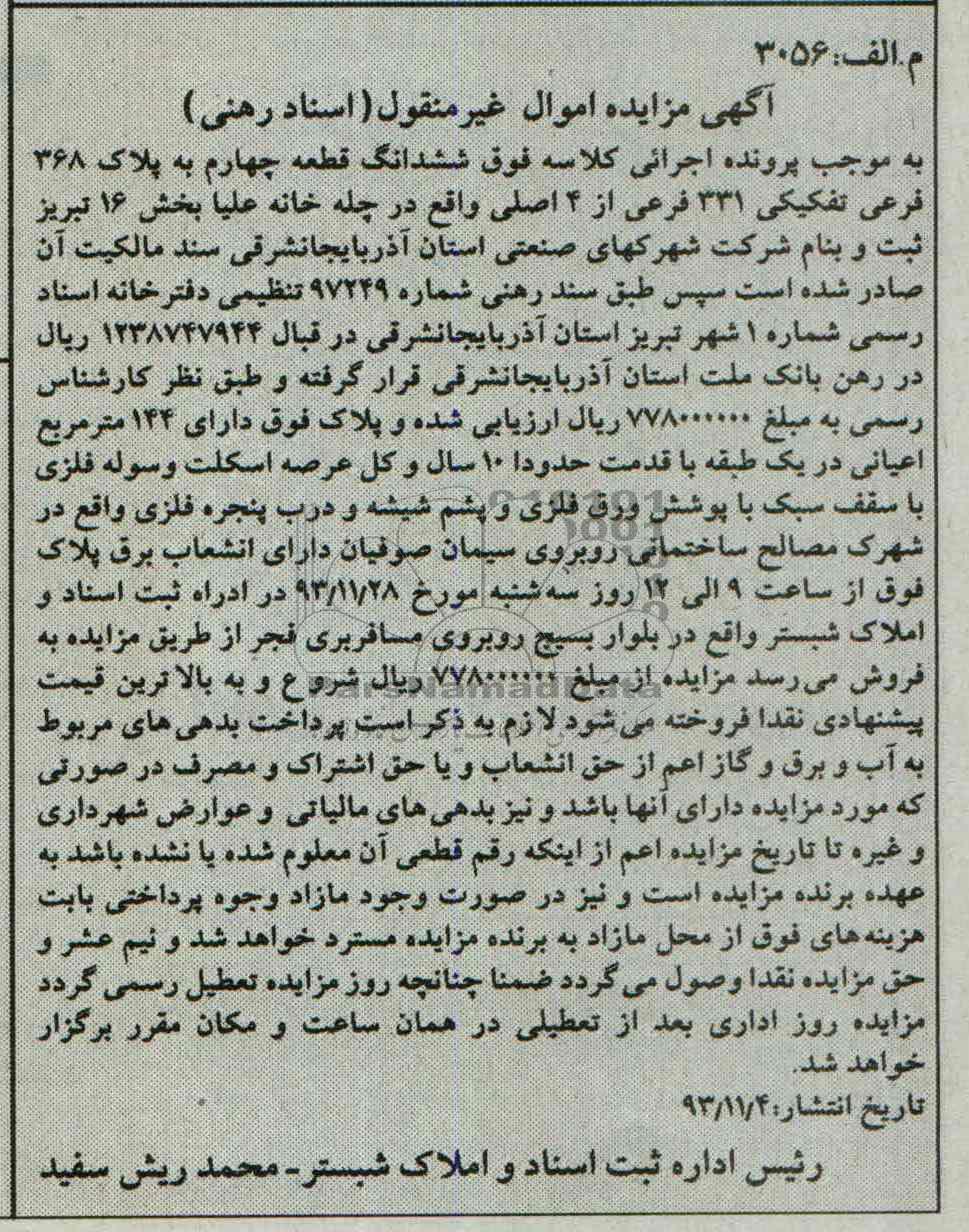 م.الف:۳۰۵۶
آگهی مزایده اموال غیرمنقول(اسناد رهنی)
به موجب پرونده اجرائی کلاسه فوق ششدانگ قطعه چهارم به پلاک ۳۶۸
فرعی تفکیکی ۳۳۱ فرعی از ۴ اصلی واقع در چله خانه علیا بخش ۱۶ تبریز
ثبت و بنام شرکت شهرکهای صنعتی استان آذربایجانشرقی سند مالکیت آن
صادر شده است سپس طبق سند رهنی شماره ۹۷۲۴۹ تنظیمی دفترخانه اسناد
رسمی شماره ۱ شهر تبریز استان آذربایجانشرقی در قبال ۱۲۳۸۷۴۷۹۴۴ ریال
در رهن بانک ملت استان آذربایجانشرقی قرار گرفته و طبق نظر کارشناس
رسمی به مبلغ ۷۷۸۰۰۰۰۰۰ ریال ارزیابی شده و پلاک فوق دارای ۱۴۴ مترمربع
اعیانی در یک طبقه با قدمت حدودا ۱۰ سال و کل عرصه اسکلت وسوله فلزی
با سقف سبک با پوشش ورق فلزی و پشم شیشه و درب پنجره فلزی واقع در
شهرک مصالح ساختمانی روبروی سیمان صوفیان دارای انشعاب برق پلاک
فوق از ساعت ۹ الی ۱۲ روز سه‌شنبه مورخ ۹۳/۱۱/۲۸ در ادراه ثبت اسناد و
املاک شبستر واقع در بلوار بسیج روبروی مسافربری فجر از طریق مزایده به
فروش می‌رسد مزایده از مبلغ ۷۷۸۰۰۰۰۰۰ ریال شروع و به بالاترین قیمت
پیشنهادی نقدا فروخته می‌شود لازم به ذکر است پرداخت بدهی‌های مربوط
به آب و برق و گاز اعم از حق انشعاب و یا حق اشتراک و مصرف در صورتی
که مورد مزایده دارای آنها باشد و نیز بدهی‌های مالیاتی و عوارض شهرداری
و غیره تا تاریخ مزایده اعم از اینکه رقم قطعی آن معلوم شده یا نشده باشد به
عهده برنده مزایده است و نیز در صورت وجود مازاد وجوه پرداختی بابت
هزینه‌های فوق از محل مازاد به برنده مزایده مسترد خواهد شد و نیم عشر و
حق مزایده نقدا وصول می‌گردد ضمنا چنانچه روز مزایده تعطیل رسمی گردد
مزایده روز اداری بعد از تعطیلی در همان ساعت و مکان مقرر برگزار
خواهد شد.
تاریخ انتشار:۹۳/۱۱/۴
رئیس اداره ثبت اسناد و املاک شبستر ـ محمد ریش سفید